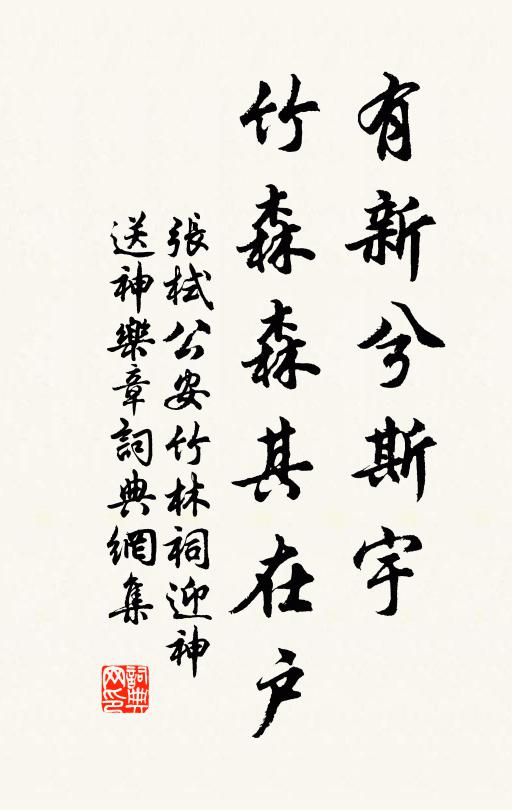 有新兮斯宇
竹森森其在户
張栻公安竹林祠迎神
送神樂章詞典網集
詞典
网印